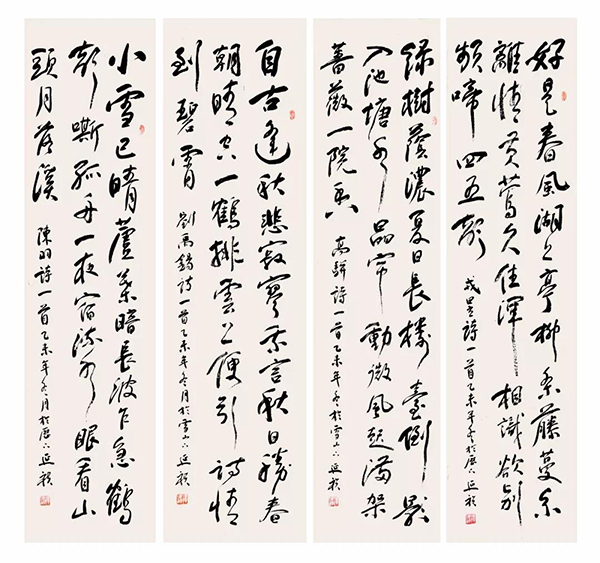 好是春風湖上亭柳条藤蔓系
離情黄鶯久住渾相識欲别
頻啼四五聲 戎昱詩一首乙未年冬於歷下延
绿樹蔭濃夏日長樓臺倒影
入池塘水晶帘動微風起滿架
薔薇一院香 高駢詩一首乙未年冬於雪山下延
自古逢秋悲寂寥我言秋日勝春
朝晴空一鶴排雲上便引詩情
到碧霄 劉禹錫詩一首乙未年冬月於雪山下延
小雪已晴蘆葉暗長波乍急鶴
聲嘶孤舟一夜宿流水眼看山
頭月落溪 陳羽詩一首乙未年冬月於歷下延